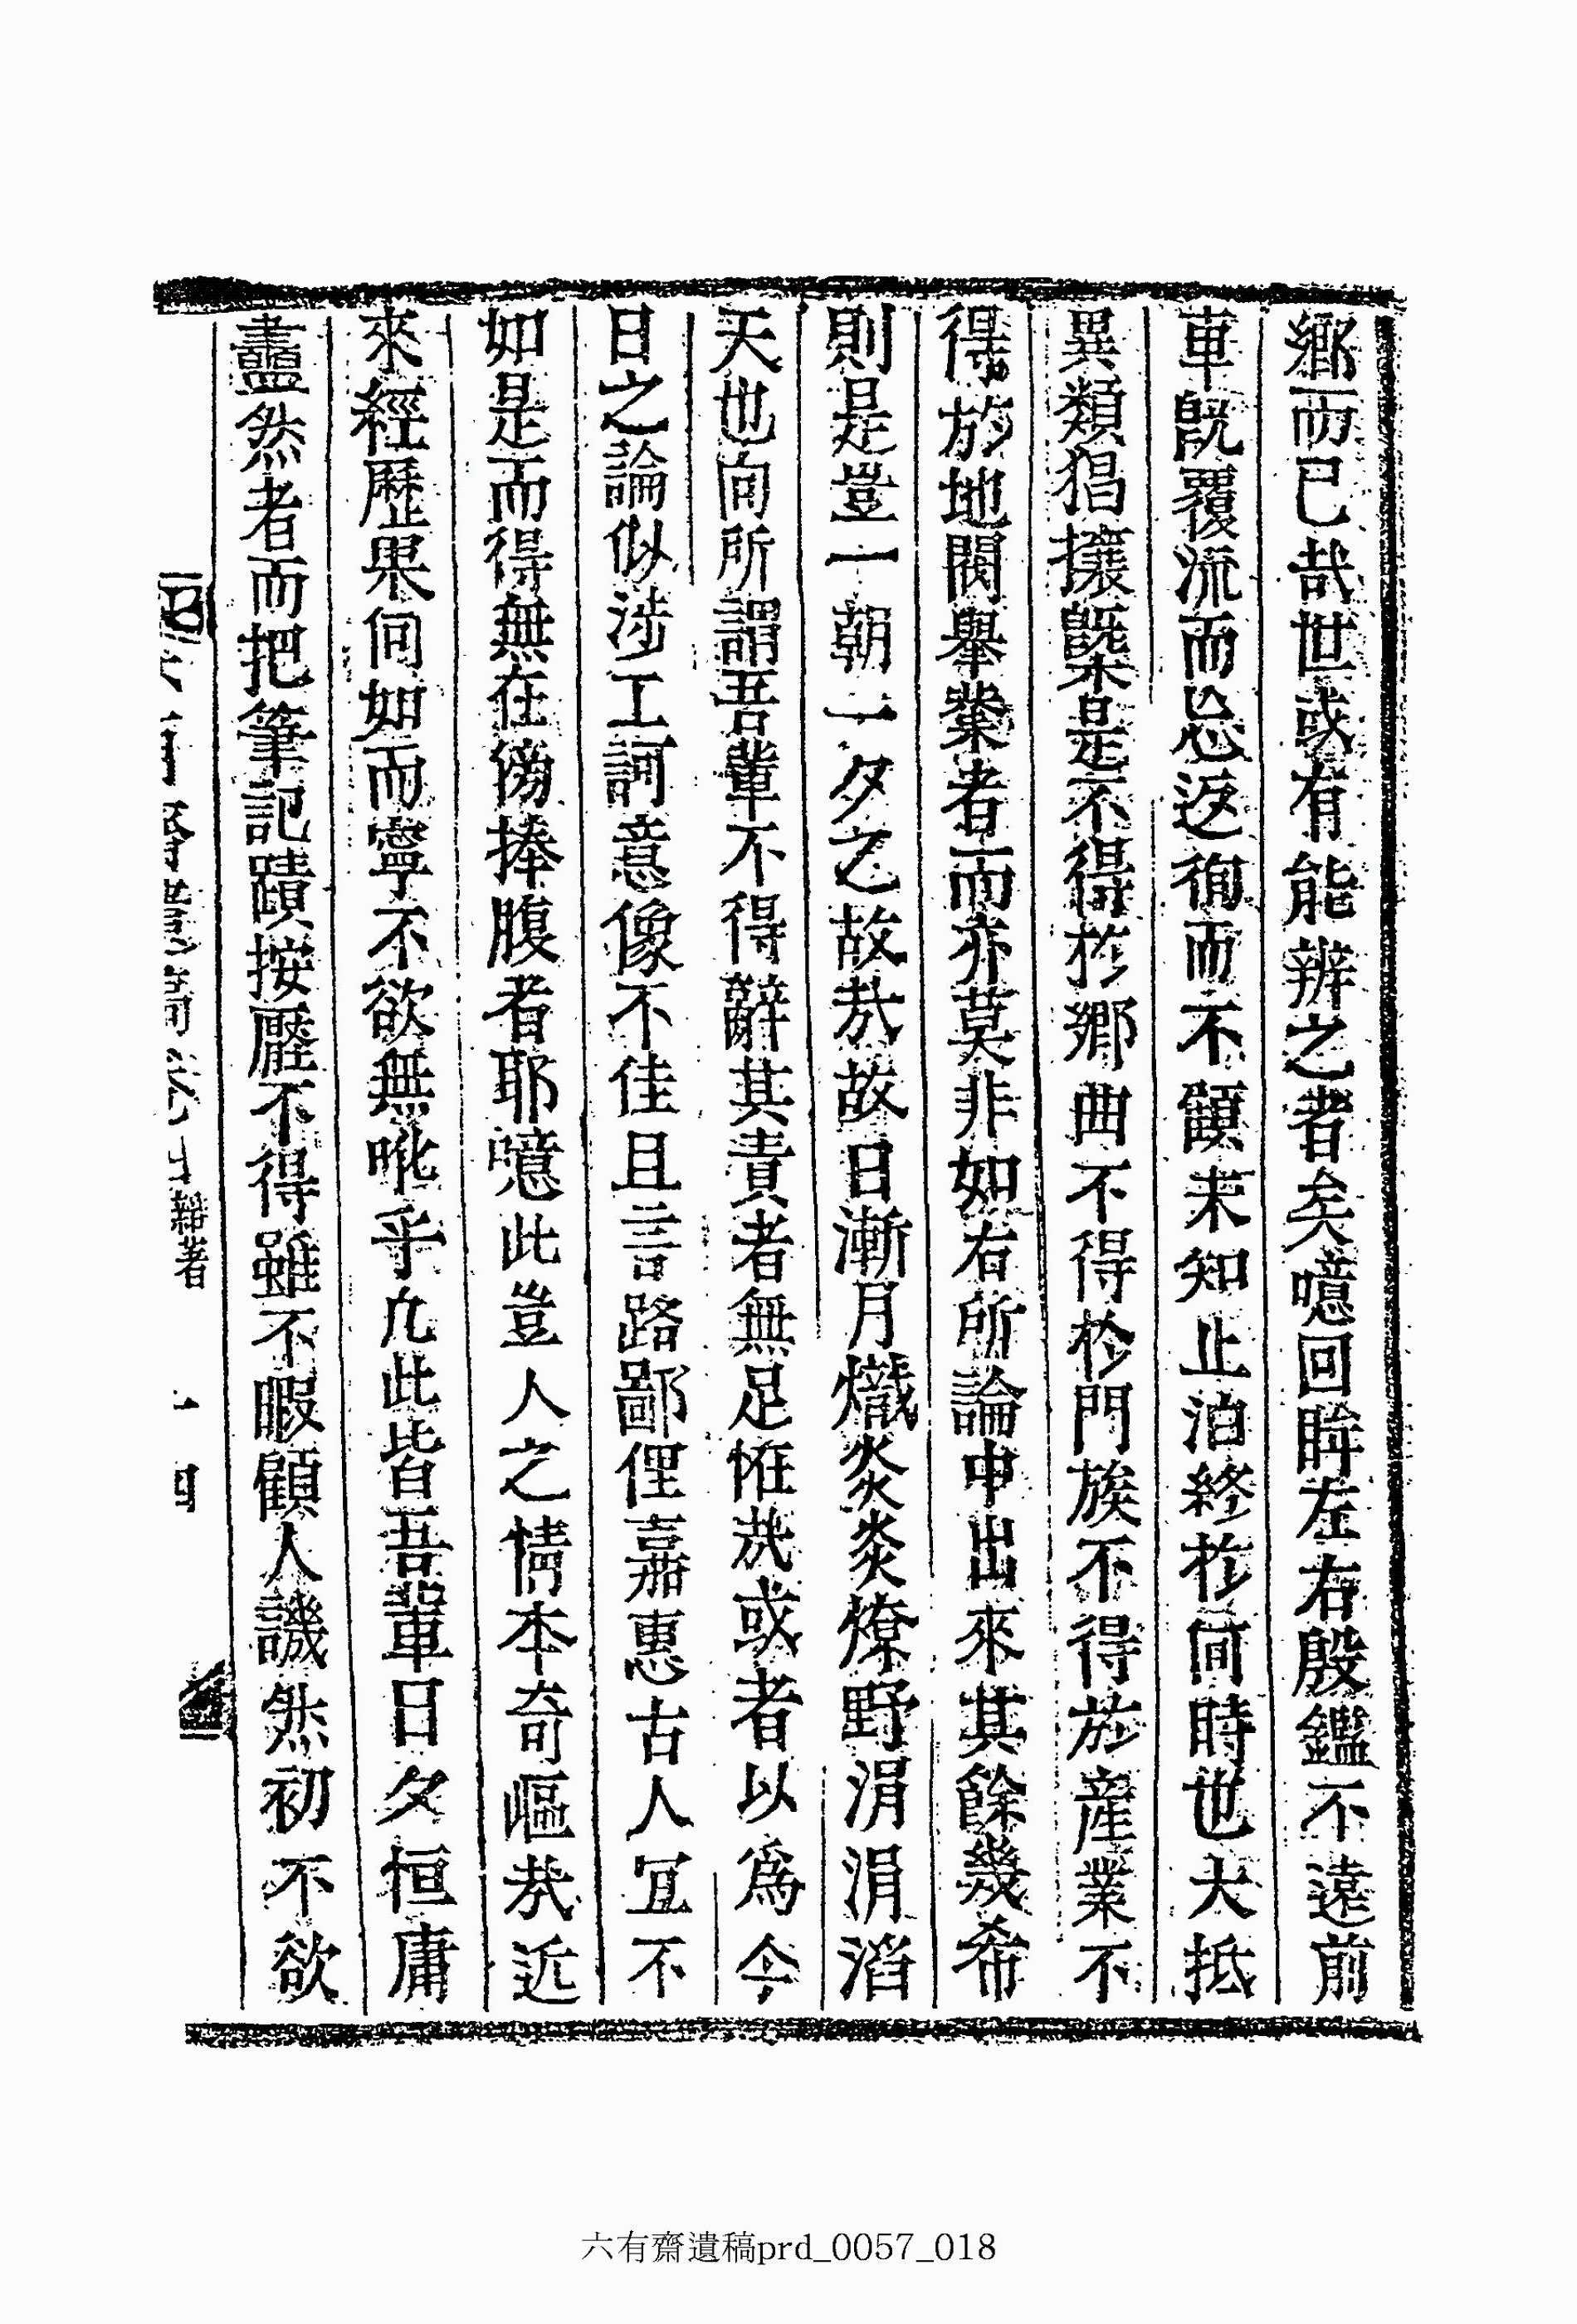 鄕而已哉世或有能辨之者矣噫回眸左右殷鑑不遠前
車旣覆流而忘返徇而不顧未知止泊終於何時也大抵
異類猖攘槩是不得於鄕曲不得於門族不得於產業不
得於地閥舉業者而亦莫非如右所論中出來其餘幾希
則是豈一朝一夕之故哉故日漸月熾炎炎燎野涓涓滔
天也向所謂吾輩不得辭其責者無足恠哉或者以爲今
日之論似涉工訶意像不佳且言路鄙俚嘉惠古人冝不
如是而得無在傍捧腹者耶噫此豈人之情本奇嶇哉近
來經歷果何如而寧不欲無吪乎凢此皆吾輩日夕恒庸
衋然者而把筆記蹟按壓不得雖不暇顧人譏然初不欲
六有齋遺稿卷之 雜著 十四
六有齋遺稿prd_0057_018